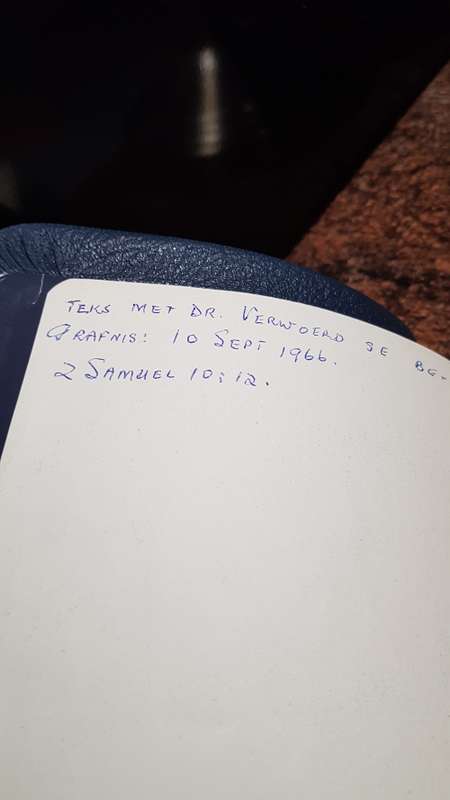 TEKS MET DR. VERWOERD SE BE-
GRAFNIS: 10 SEPT 1966.
2 SAMUEL 10:12.